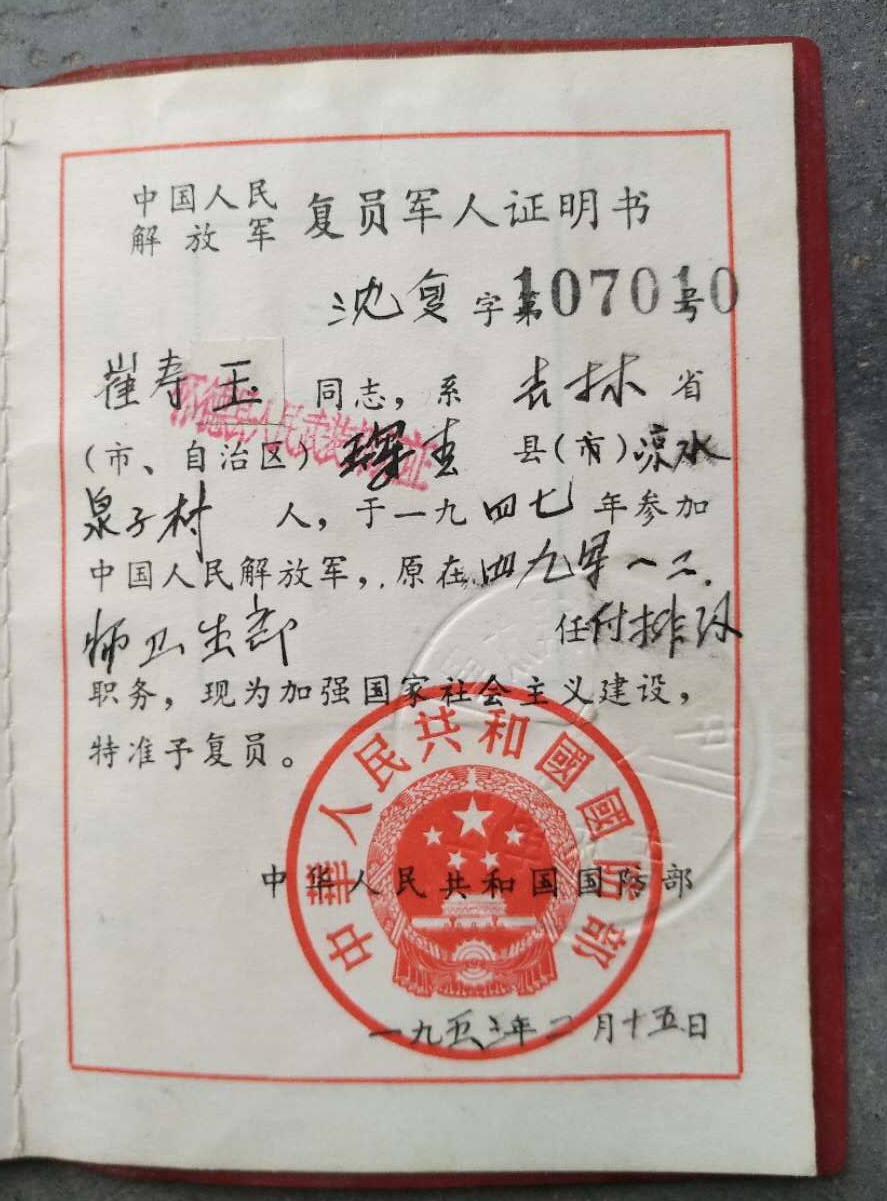 中国人民
解放军 复员军人证明书
沈复字第107010号
崔寿玉 同志，系 吉林 省
怀德县人民武装 证
（市、自治区）珲春 县（市）凉水
泉子村 人，于一九四七年参加
中国人民解放军，原在四九军一六二
师卫生部 任付排级
职务，现为加强国家社会主义建设，
特准予复员。
中华人民共和国国防部
中華人民共和國國防部
一九五 年二月十五日